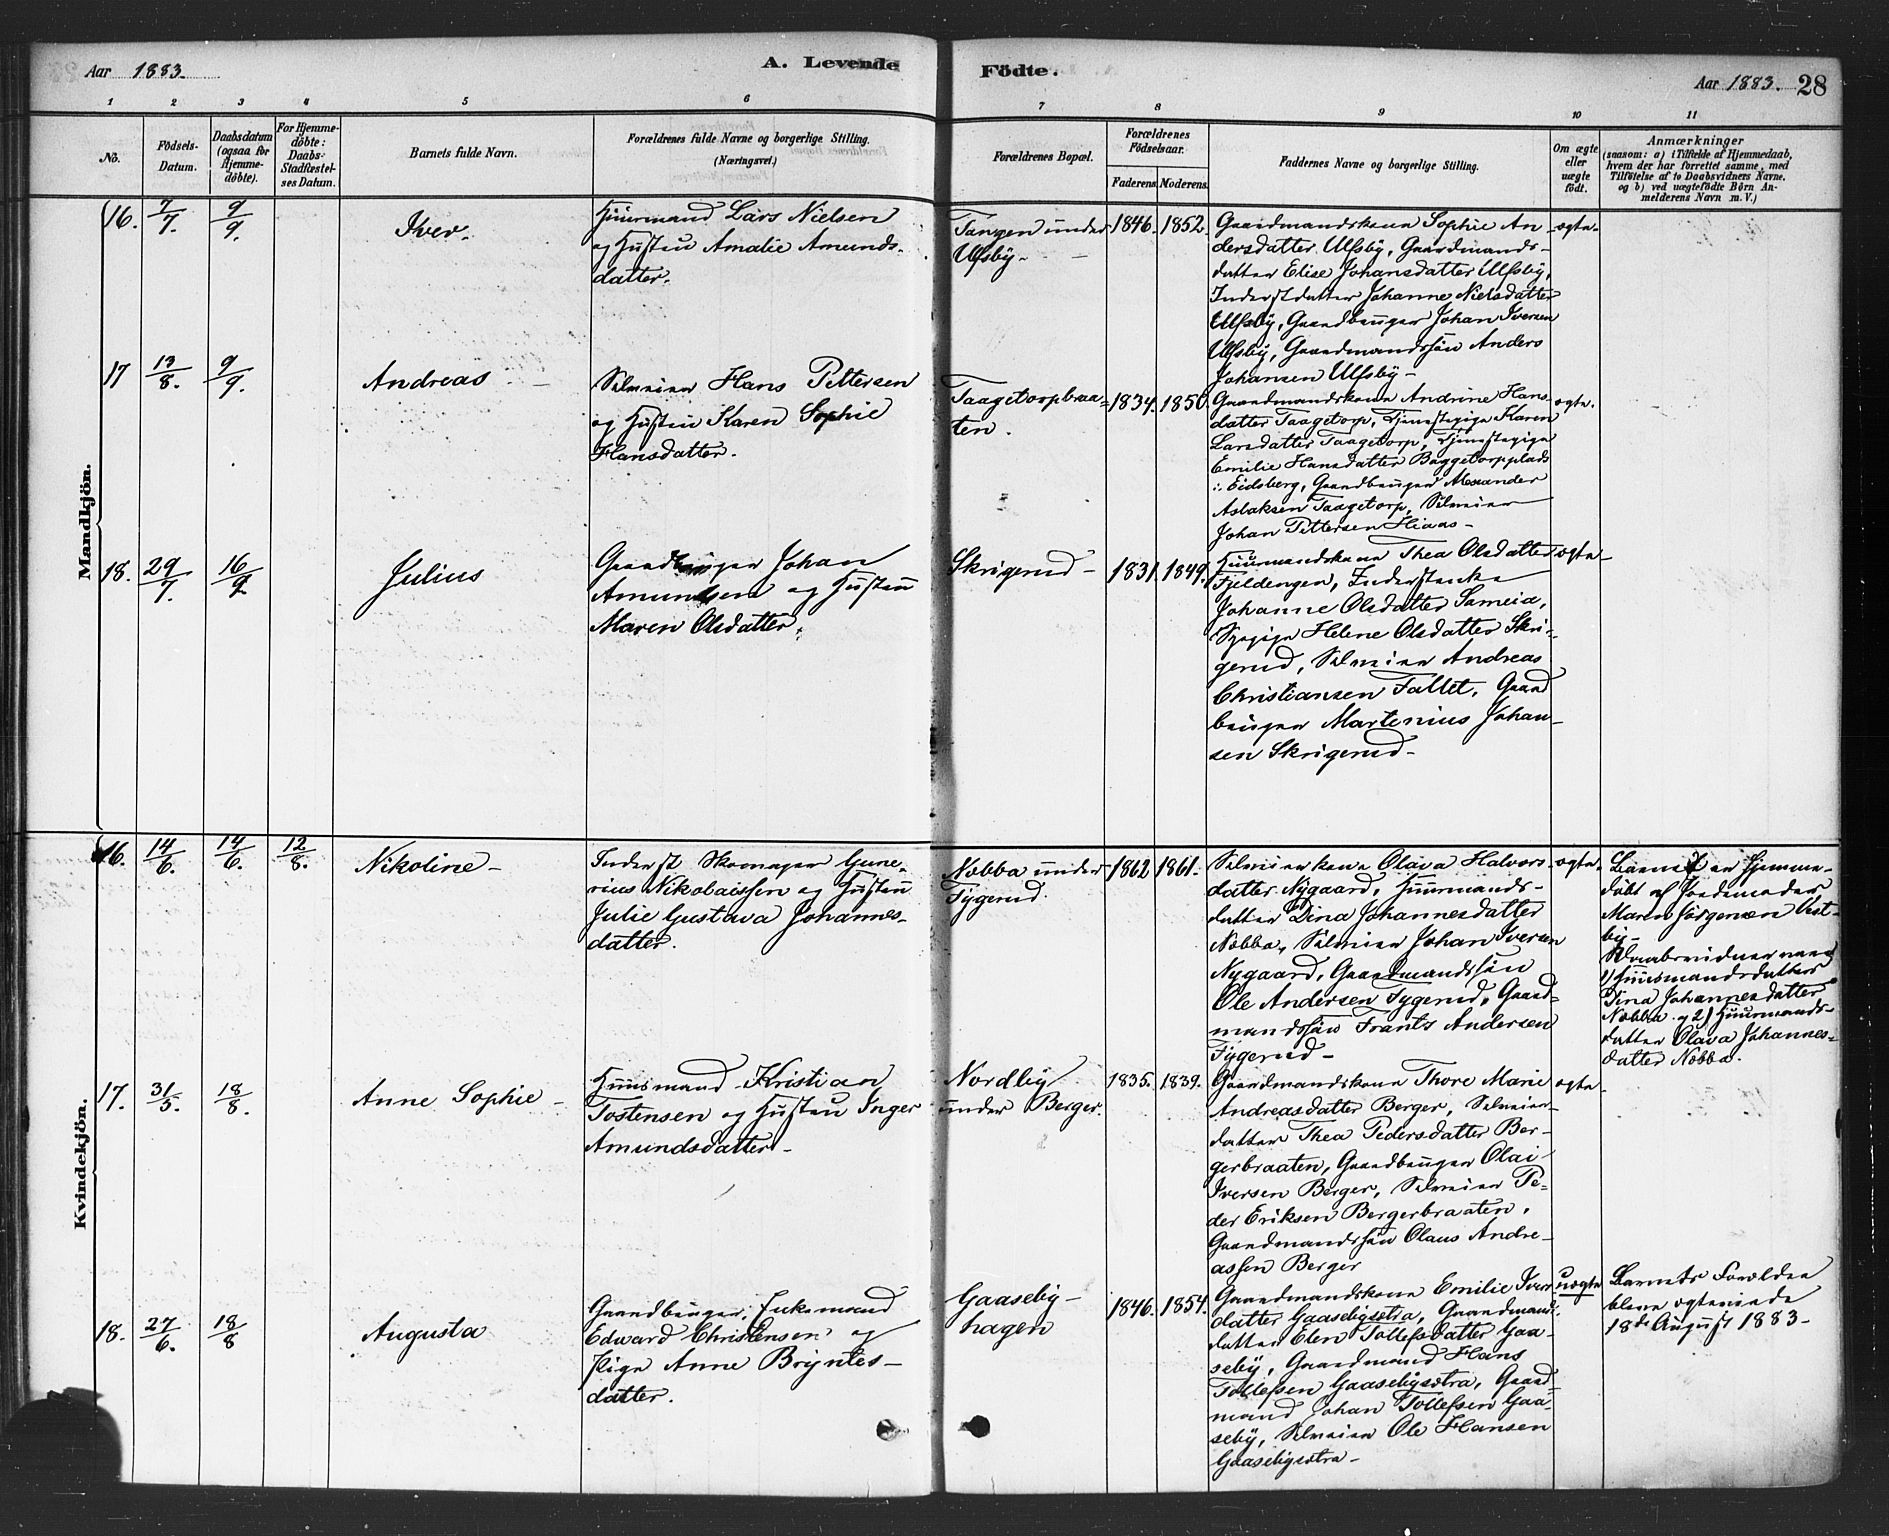 Aar 1883.
A. Levende
Födte.
Aar 1883. 28
1 2 3 4 5 6 7 8 9 10 11
No.
Födsels-
Datum.
Daabsdatum
(ogsaa for
Hjemme-
döbte).
For Hjemme-
döbte:
Daabs-
Stadfæstel-
ses Datum.
Barnets fulde Navn.
Forældrenes fulde Navne og borgerlige Stilling.
(Næringsvei.)
Forældrenes Bopæl.
Forældrenes
Födselsaar.
Faderens. Moderens.
Faddernes Navne og borgerlige Stilling.
Om ægte
eller
uægte
født.
Anmærkninger
(saasom: a) i Tilfælde af Hjemmedaab,
hvem der har forrettet samme, med
Tilføielse af to Daabsvidners Navne,
og b) ved uægtefødte Børn An-
melderens Navn m. V.)
Mandkjön.
16. 7/7. 9/9.
Iver.
Huusmand Lars Nielsen
og Hustru Amalie Amunds-
datter.
Tangen under
Ulfsby.
1846. 1852.
Gaardmandskone Sophie An-
dersdatter Ulfsby, Gaardmands-
datter Elise Johansdatter Ulfsby,
Inderstdatter Johanne Nielsdatter
Ulfsby, Gaardbruger Johan Iversen
Ulfsby, Gaardmandssøn Anders
Johansen Ulfsby-
ægte.
17 13/8. 9/9.
Andreas
Selveier Hans Pettersen
og Hustru Karen Sophie
Hansdatter.
Taagetorpbraa-
ten.
1834. 1850
Gaardmandskone Andrine Hans-
datter Taagetorp, Tjenestepige Karen
Larsdatter Taagetorp, Tjenestepige
Emilie Hansdatter Baggetorpplads
: Eidsberg, Gaardbruger Alexander
Aslaksen Taagetorp, Selveier
Johan Pettersen Hiaas-
ægte.
18. 29/7. 16/9
Julius
Gaardbruger Johan
Amundsen og Hustru
Maren Olsdatter.
Skrigerud-
1831. 1849.
Huusmandskone Thea Olsdatter
Fjeldengen, Inderstenke
Johanne Olsdatter Sameia,
Pige Helene Olsdatter Skri-
gerud, Selveier Andreas
Christiansen Fallet, Gaard
bruger Martenius Johan-
sen Skrigerud-
ægte-
Kvindekjön.
16. 14/6. 14/6. 12/8.
Nikoline-
Inderst Skomager Gune-
rius Nikolaissen og Hustru
Julie Gustava Johannes-
datter.
Nobba under
Tygerud.
1862 1861.
Selveierkone Olava Halvors-
datter Nygaard, Huusmands-
datter Dina Johannesdatter
Nobba, Selveier Johan Iversen
Nygaard, Gaardmandssøn
Ole Andersen Tygerud, Gaard-
mandssøn Frants Andersen
Tygerud-
ægte.
Barnet er hjemme-
døbt af Jordemoder
Maren Jørgensen Vest-
by-
Daabsvidner vare
1) Huusmandsdatter
Dina Johannesdatter
Nobba og 2) Huusmands-
datter Olava Johannes-
datter Nobba.
17. 31/5. 18/8.
Anne Sophie-
Huusmand Kristian
Tostensen og Hustru Inger
Amundsdatter-
Nordby
under Berger.
1835. 1839.
Gaardmandskone Thore Marie
Andreasdatter Berger, Selveier-
datter Thea Pedersdatter Ber-
gerbraaten, Gaardbruger Olai
Iversen Berger, Selveier Pe-
der Eriksen Bergerbraaten,
Gaardmandssøn Olaus Andre-
assen Berger
ægte-
18. 27/6. 18/8
Augusta
Gaardbruger, Enkemand
Edward Christensen og
Pige Anne Bryntes-
datter.
Gaaseby-
hagen
1846. 1854.
Gaardmandskone Emilie Iver-
datter Gaasebysætra, Gaardmands-
datter Elen Tollefsdatter Gaa-
seby, Gaardmand Hans
Tollefsen Gaasebysætra, Gaard-
mand Johan Tollefsen Gaa-
seby, Selveier Ole Hansen
Gaasebysætra-
uægte
Barnets Forældre
bleve ægteviede
18de August 1883-